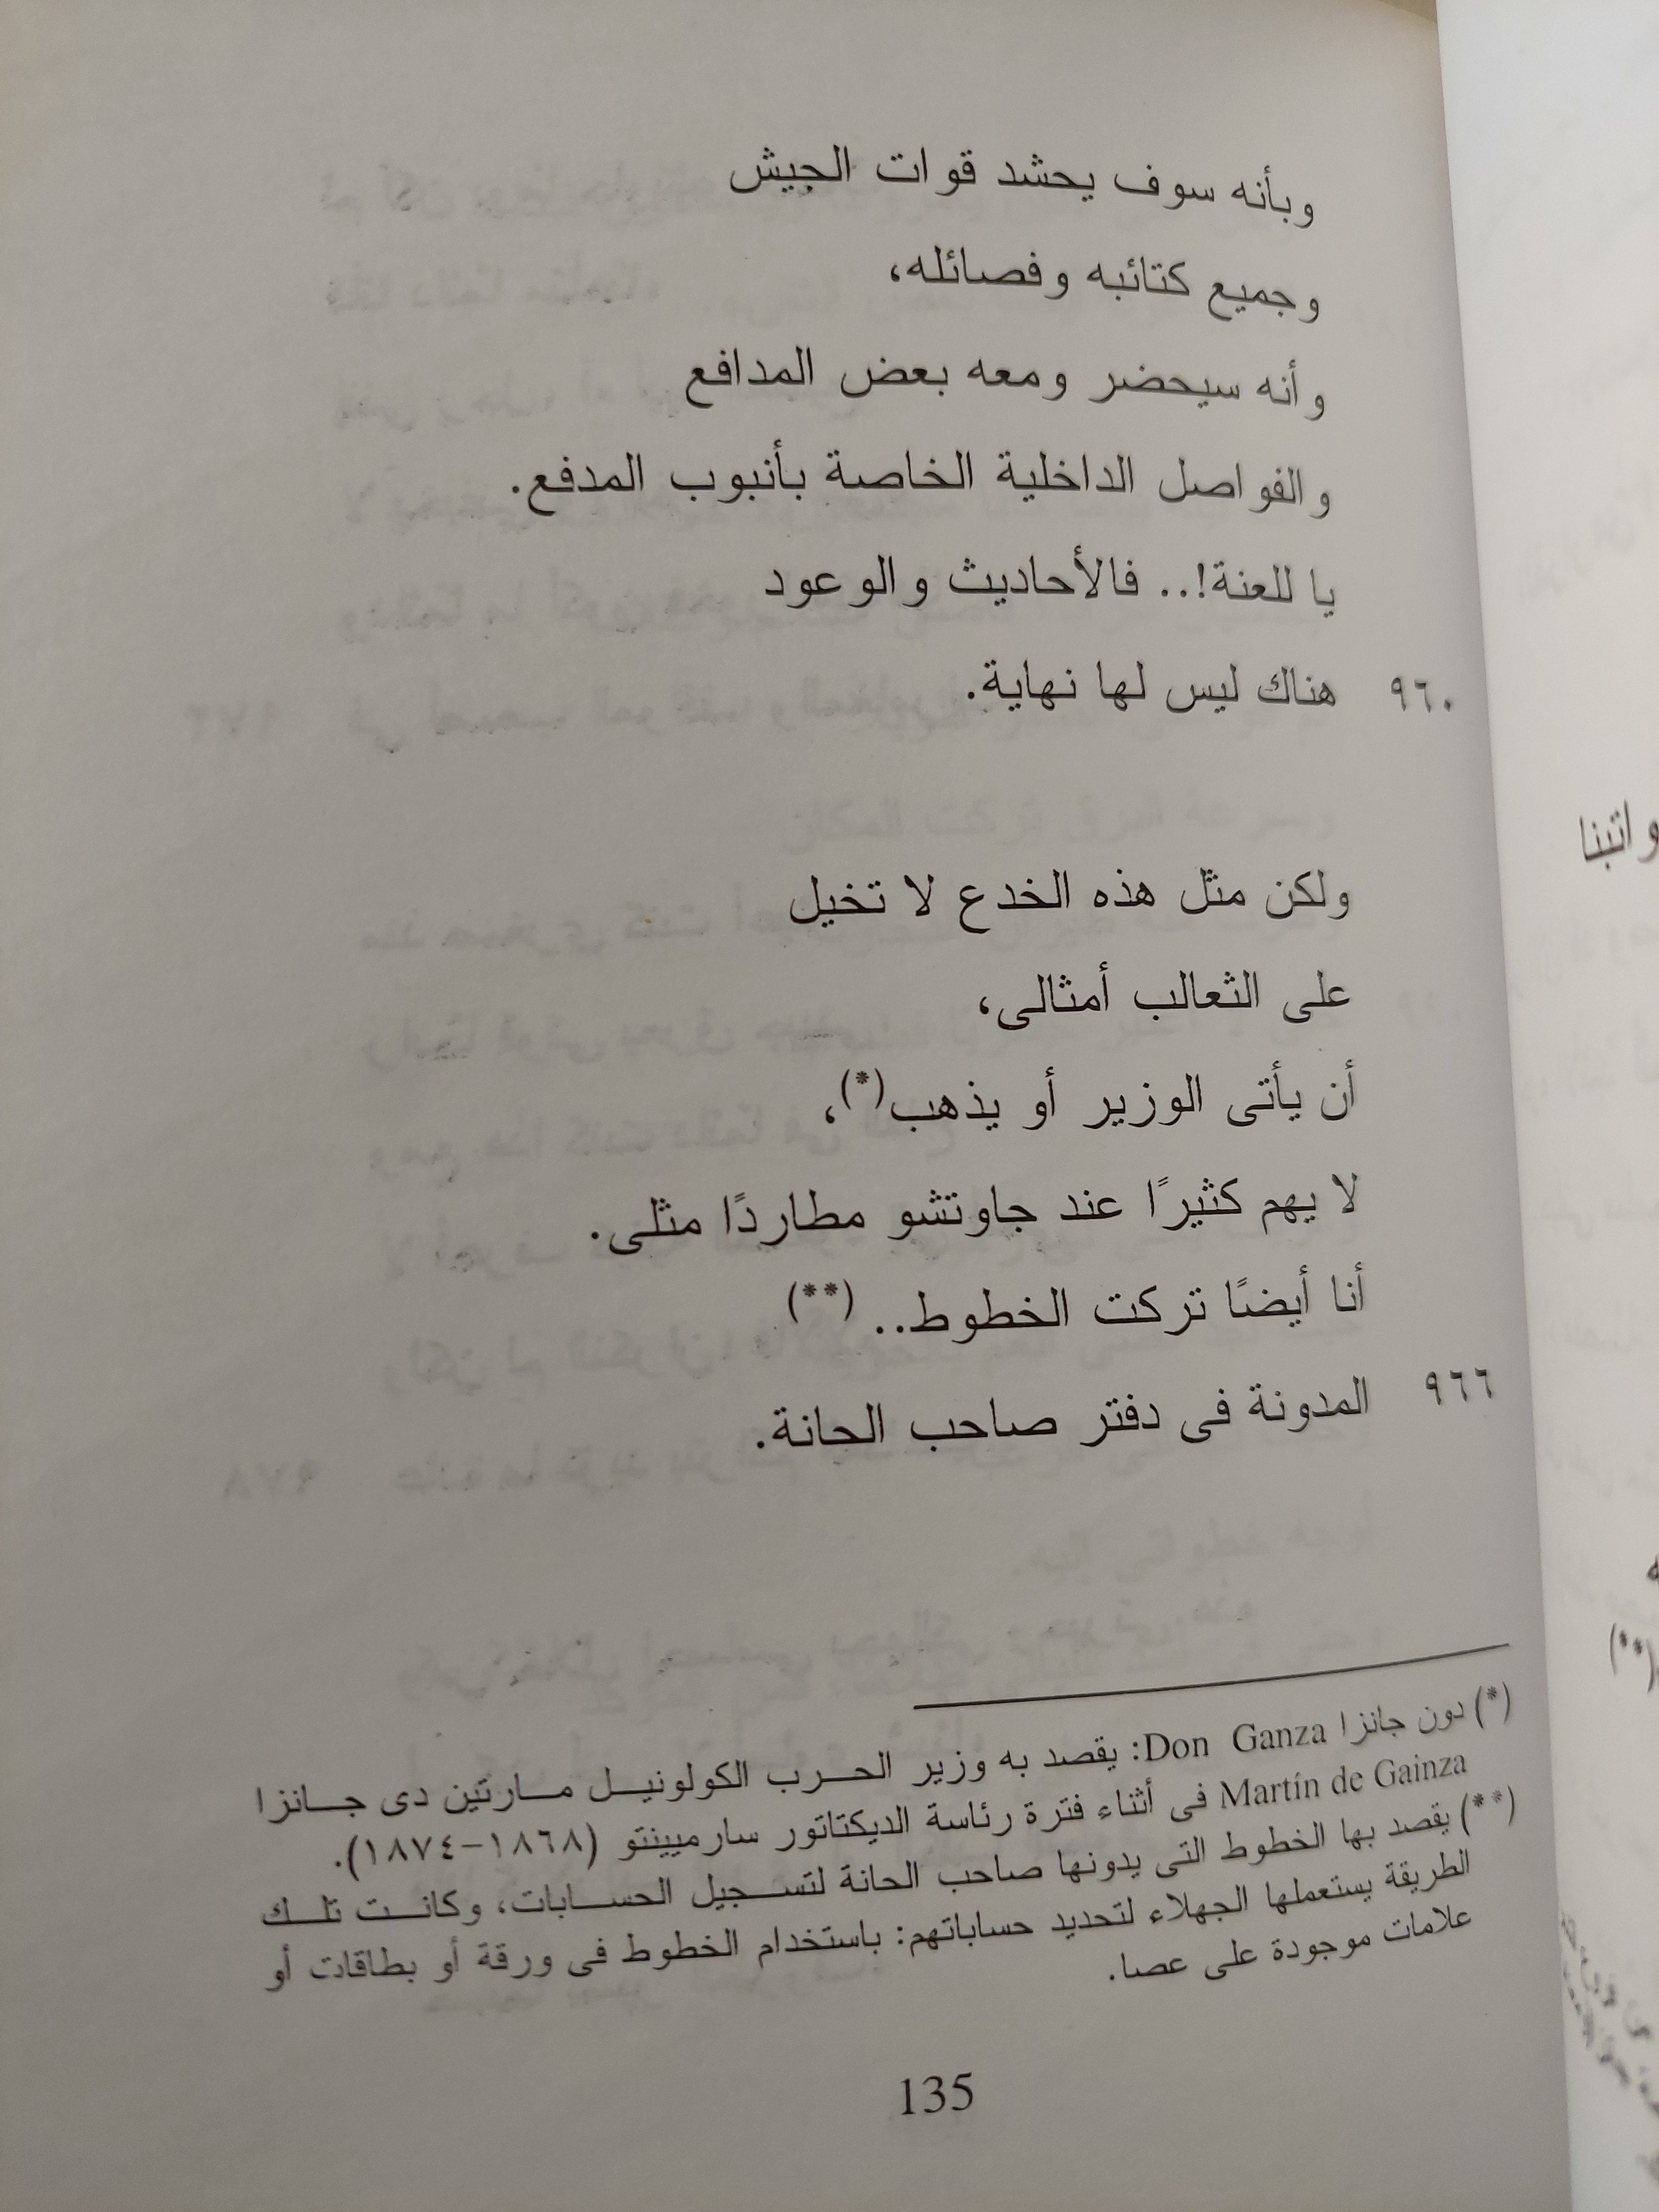 وبأنه سوف يحشد قوات الجيش
وجميع كتائبه وفصائله،
وأنه سيحضر ومعه بعض المدافع
والفواصل الداخلية الخاصة بأنبوب المدفع.
يا للعنة!.. فالأحاديث والوعود
٩٦٠ هناك ليس لها نهاية.
ولكن مثل هذه الخدع لا تخيل
على الثعالب أمثالى،
أن يأتى الوزير أو يذهب(*)،
لا يهم كثيرًا عند جاوتشو مطاردًا مثلى.
أنا أيضًا تركت الخطوط.. (**)
٩٦٦ المدونة فى دفتر صاحب الحانة.
(*) دون جانزا Don Ganza: يقصد به وزير الحرب الكولونيل مارتين دى جانزا
Martín de Gainza فى أثناء فترة رئاسة الديكتاتور سارميينتو (١٨٦٨-١٨٧٤).
(**) يقصد بها الخطوط التى يدونها صاحب الحانة لتسجيل الحسابات، وكانت تلك
الطريقة يستعملها الجهلاء لتحديد حساباتهم: باستخدام الخطوط فى ورقة أو بطاقات أو
علامات موجودة على عصا.
135
واتبنا
(**)